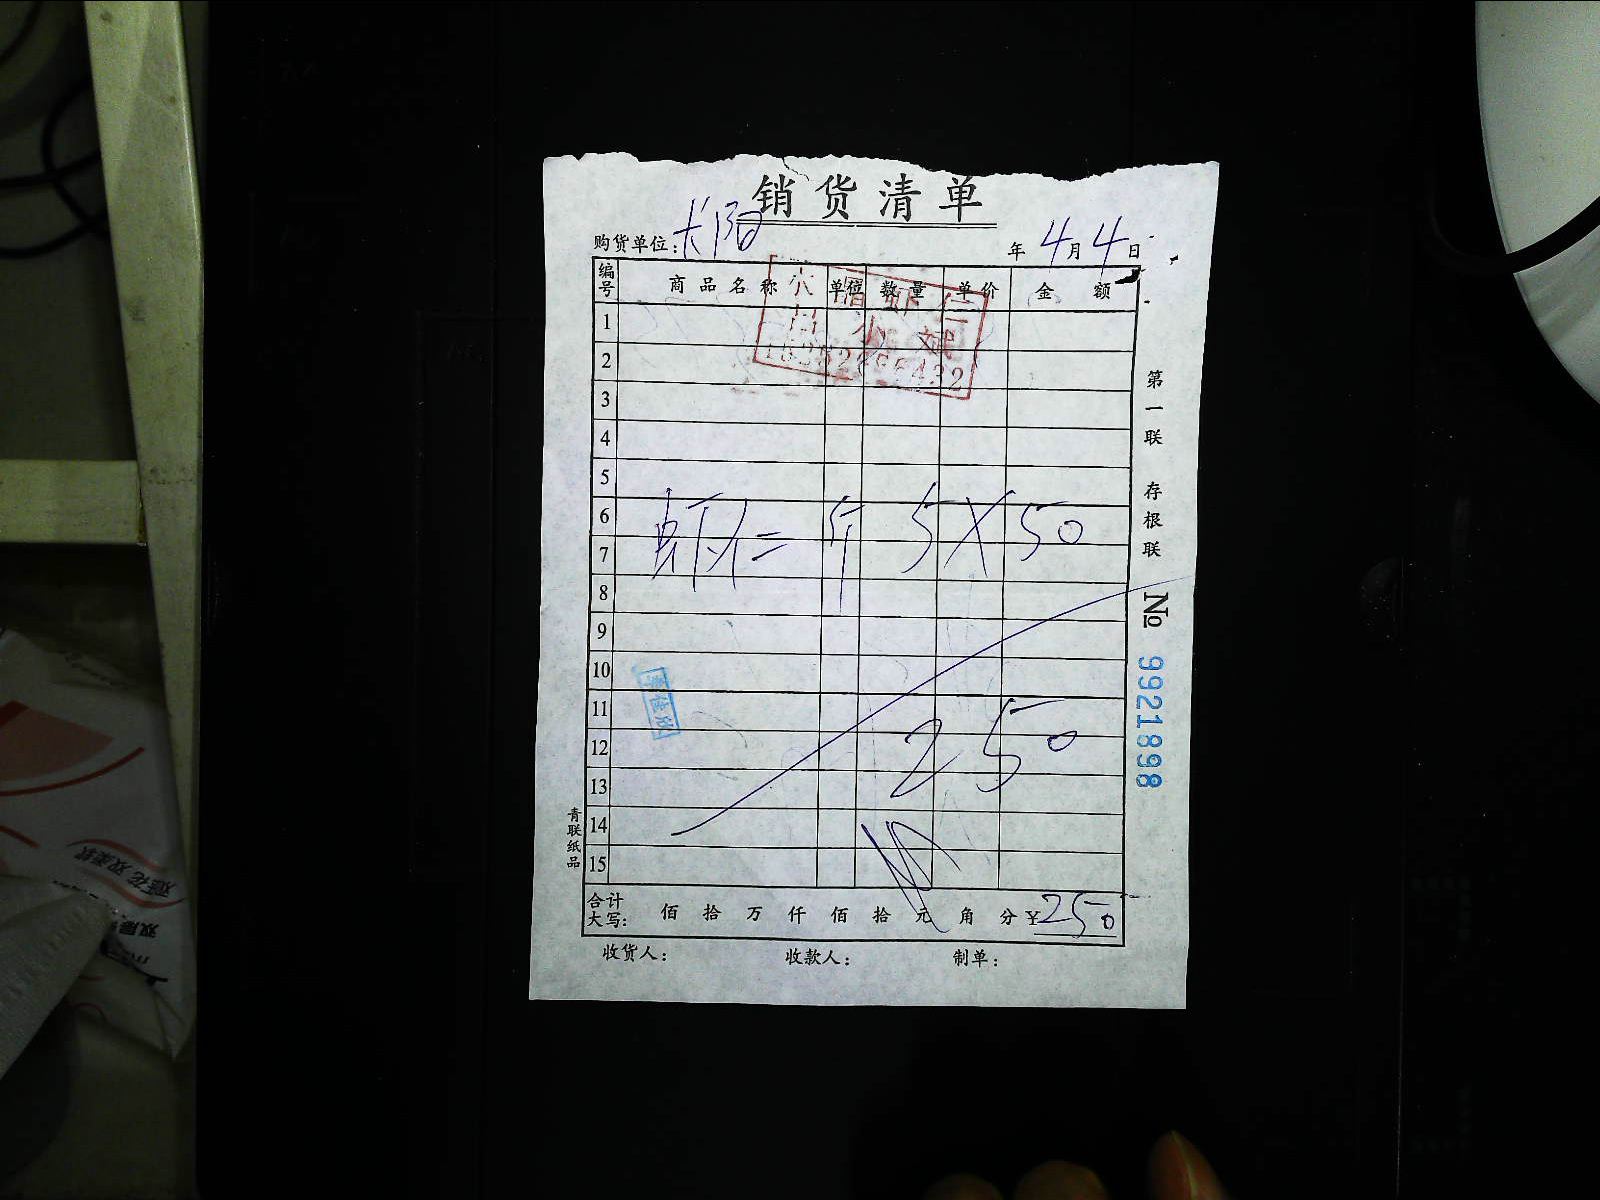 销货清单
购货单位: 长阳 年4月4日
编号 商品名称 单位 数量 单价 金额
1
2
3
4
5
6
7
虾仁= 斤 5X50
8
9
10
11
12
250
13
14
15
合计大写: 佰 拾 万 仟 佰 拾 元 角 分 ¥250
收货人: 收款人: 制单:
第一联 存根联
No 9921898
青联纸品
李佳欣